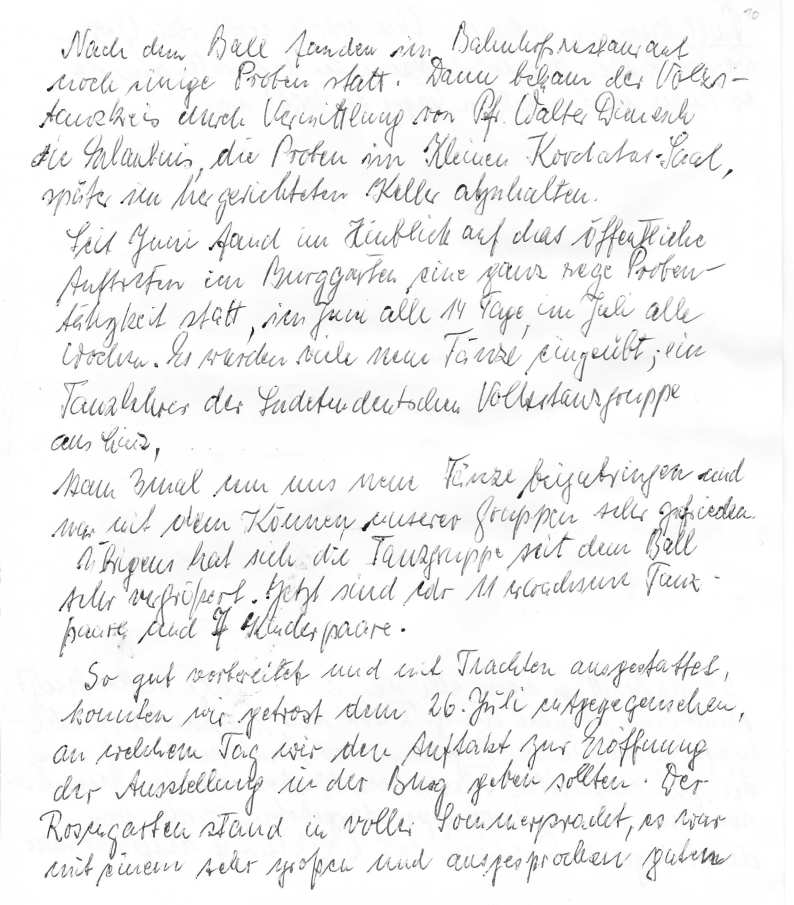 10
Nach dem Ball fanden im Bahnhofsrestaurant
noch einige Proben statt. Dann bekam der Volks-
tanzkreis durch Vermittlung von Pfr. Walter Dienesch
die Erlaubnis, die Proben im Kleinen Kordatus-Saal,
später im hergerichteten Keller abzuhalten.
Seit Juni fand im Hinblick auf das öffentliche
Auftreten im Burggarten eine ganz rege Proben-
tätigkeit statt, im Juni alle 14 Tage, im Juli alle
Wochen. Es wurden viele neue Tänze eingeübt, ein
Tanzlehrer der Sudetendeutschen Volkstanzgruppe
aus Linz,
kam 3mal um uns neue Tänze beizubringen und
war mit dem Können unserer Gruppen sehr zufrieden.
Übrigens hat sich die Tanzgruppe seit dem Ball
sehr vergrößert. Jetzt sind wir 11 erwachsene Tanz-
paare und 7 Kinderpaare.
So gut vorbereitet und mit Trachten ausgestattet,
konnten wir getrost dem 26. Juli entgegensehen,
an welchem Tag wir den Auftakt zur Eröffnung
der Ausstellung in der Burg geben sollten. Der
Rosengarten stand in voller Sommerpracht, es war
mit einem sehr großen und ausgesprochen guten